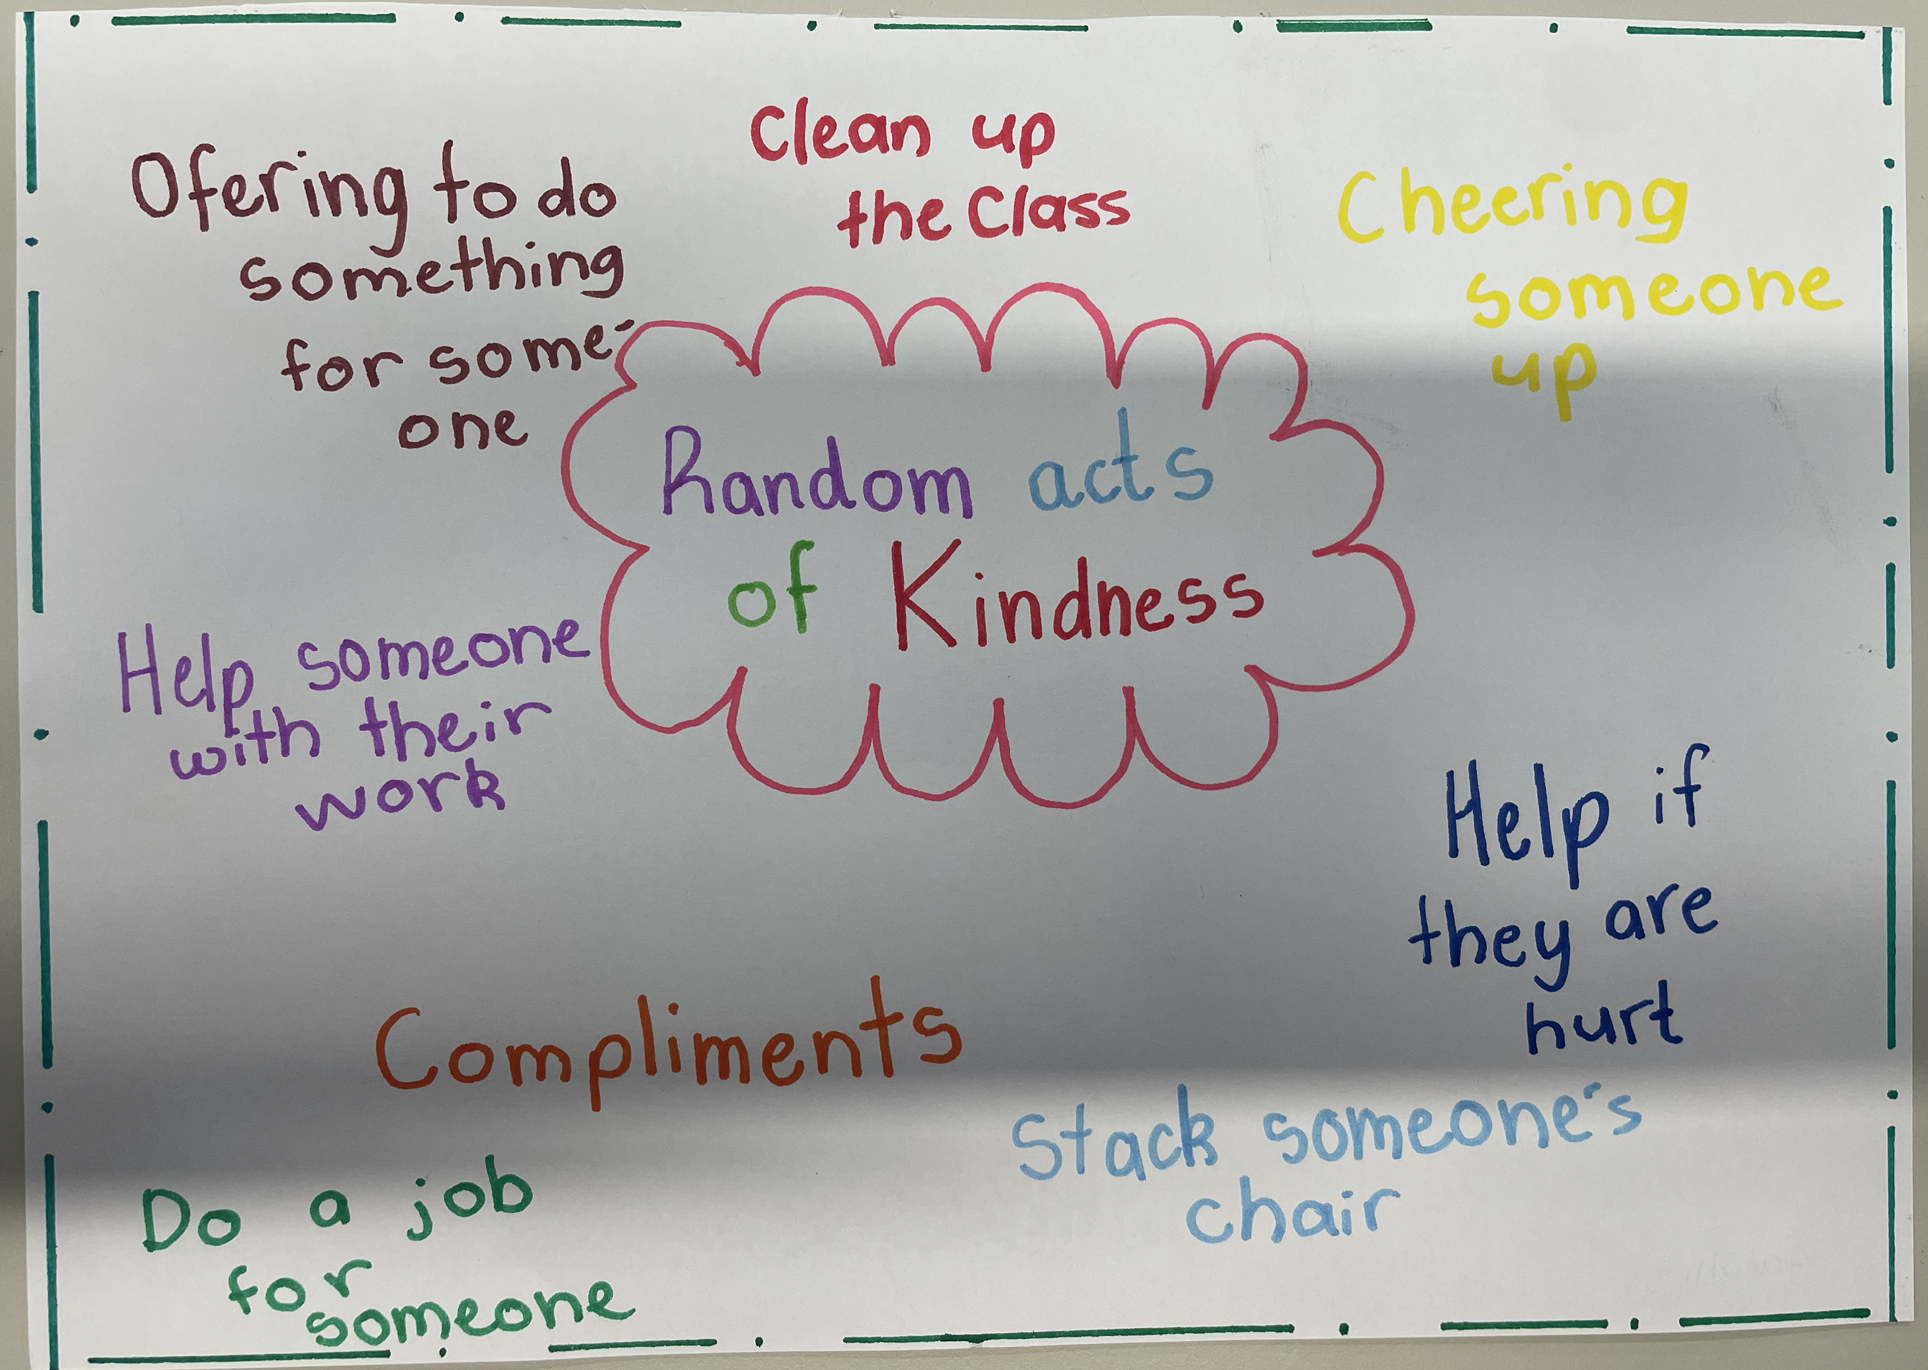 Ofering to do
something
for some-
one
Clean up
the Class
Cheering
someone
up
Random acts
of Kindness
Help someone
with their
work
Help if
they are
hurt
Compliments
Stack someone's
chair
Do a job
for
someone